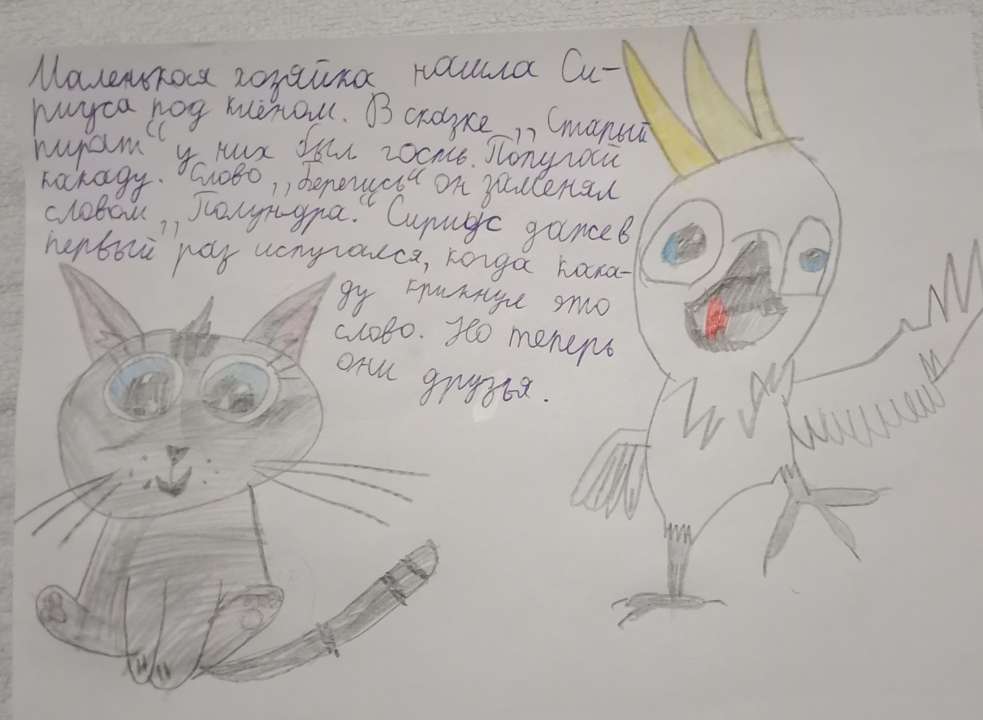 Маленькая хозяйка нашла Си-
риуса под клёном. В сказке „Старый
пират“ у них был гость. Попугай
какаду. Слово „Берегись“ он заменял
словом „Полундра.“ Сириус даже в
первый раз испугался, когда кака-
ду крикнул это
слово. Но теперь
они друзья.